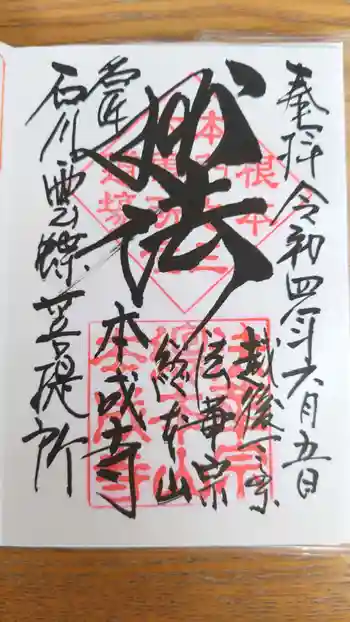 奉拝 令和四年六月五日
越後三条
法華宗
総本山
妙法
本成寺
石川雲蝶菩提所